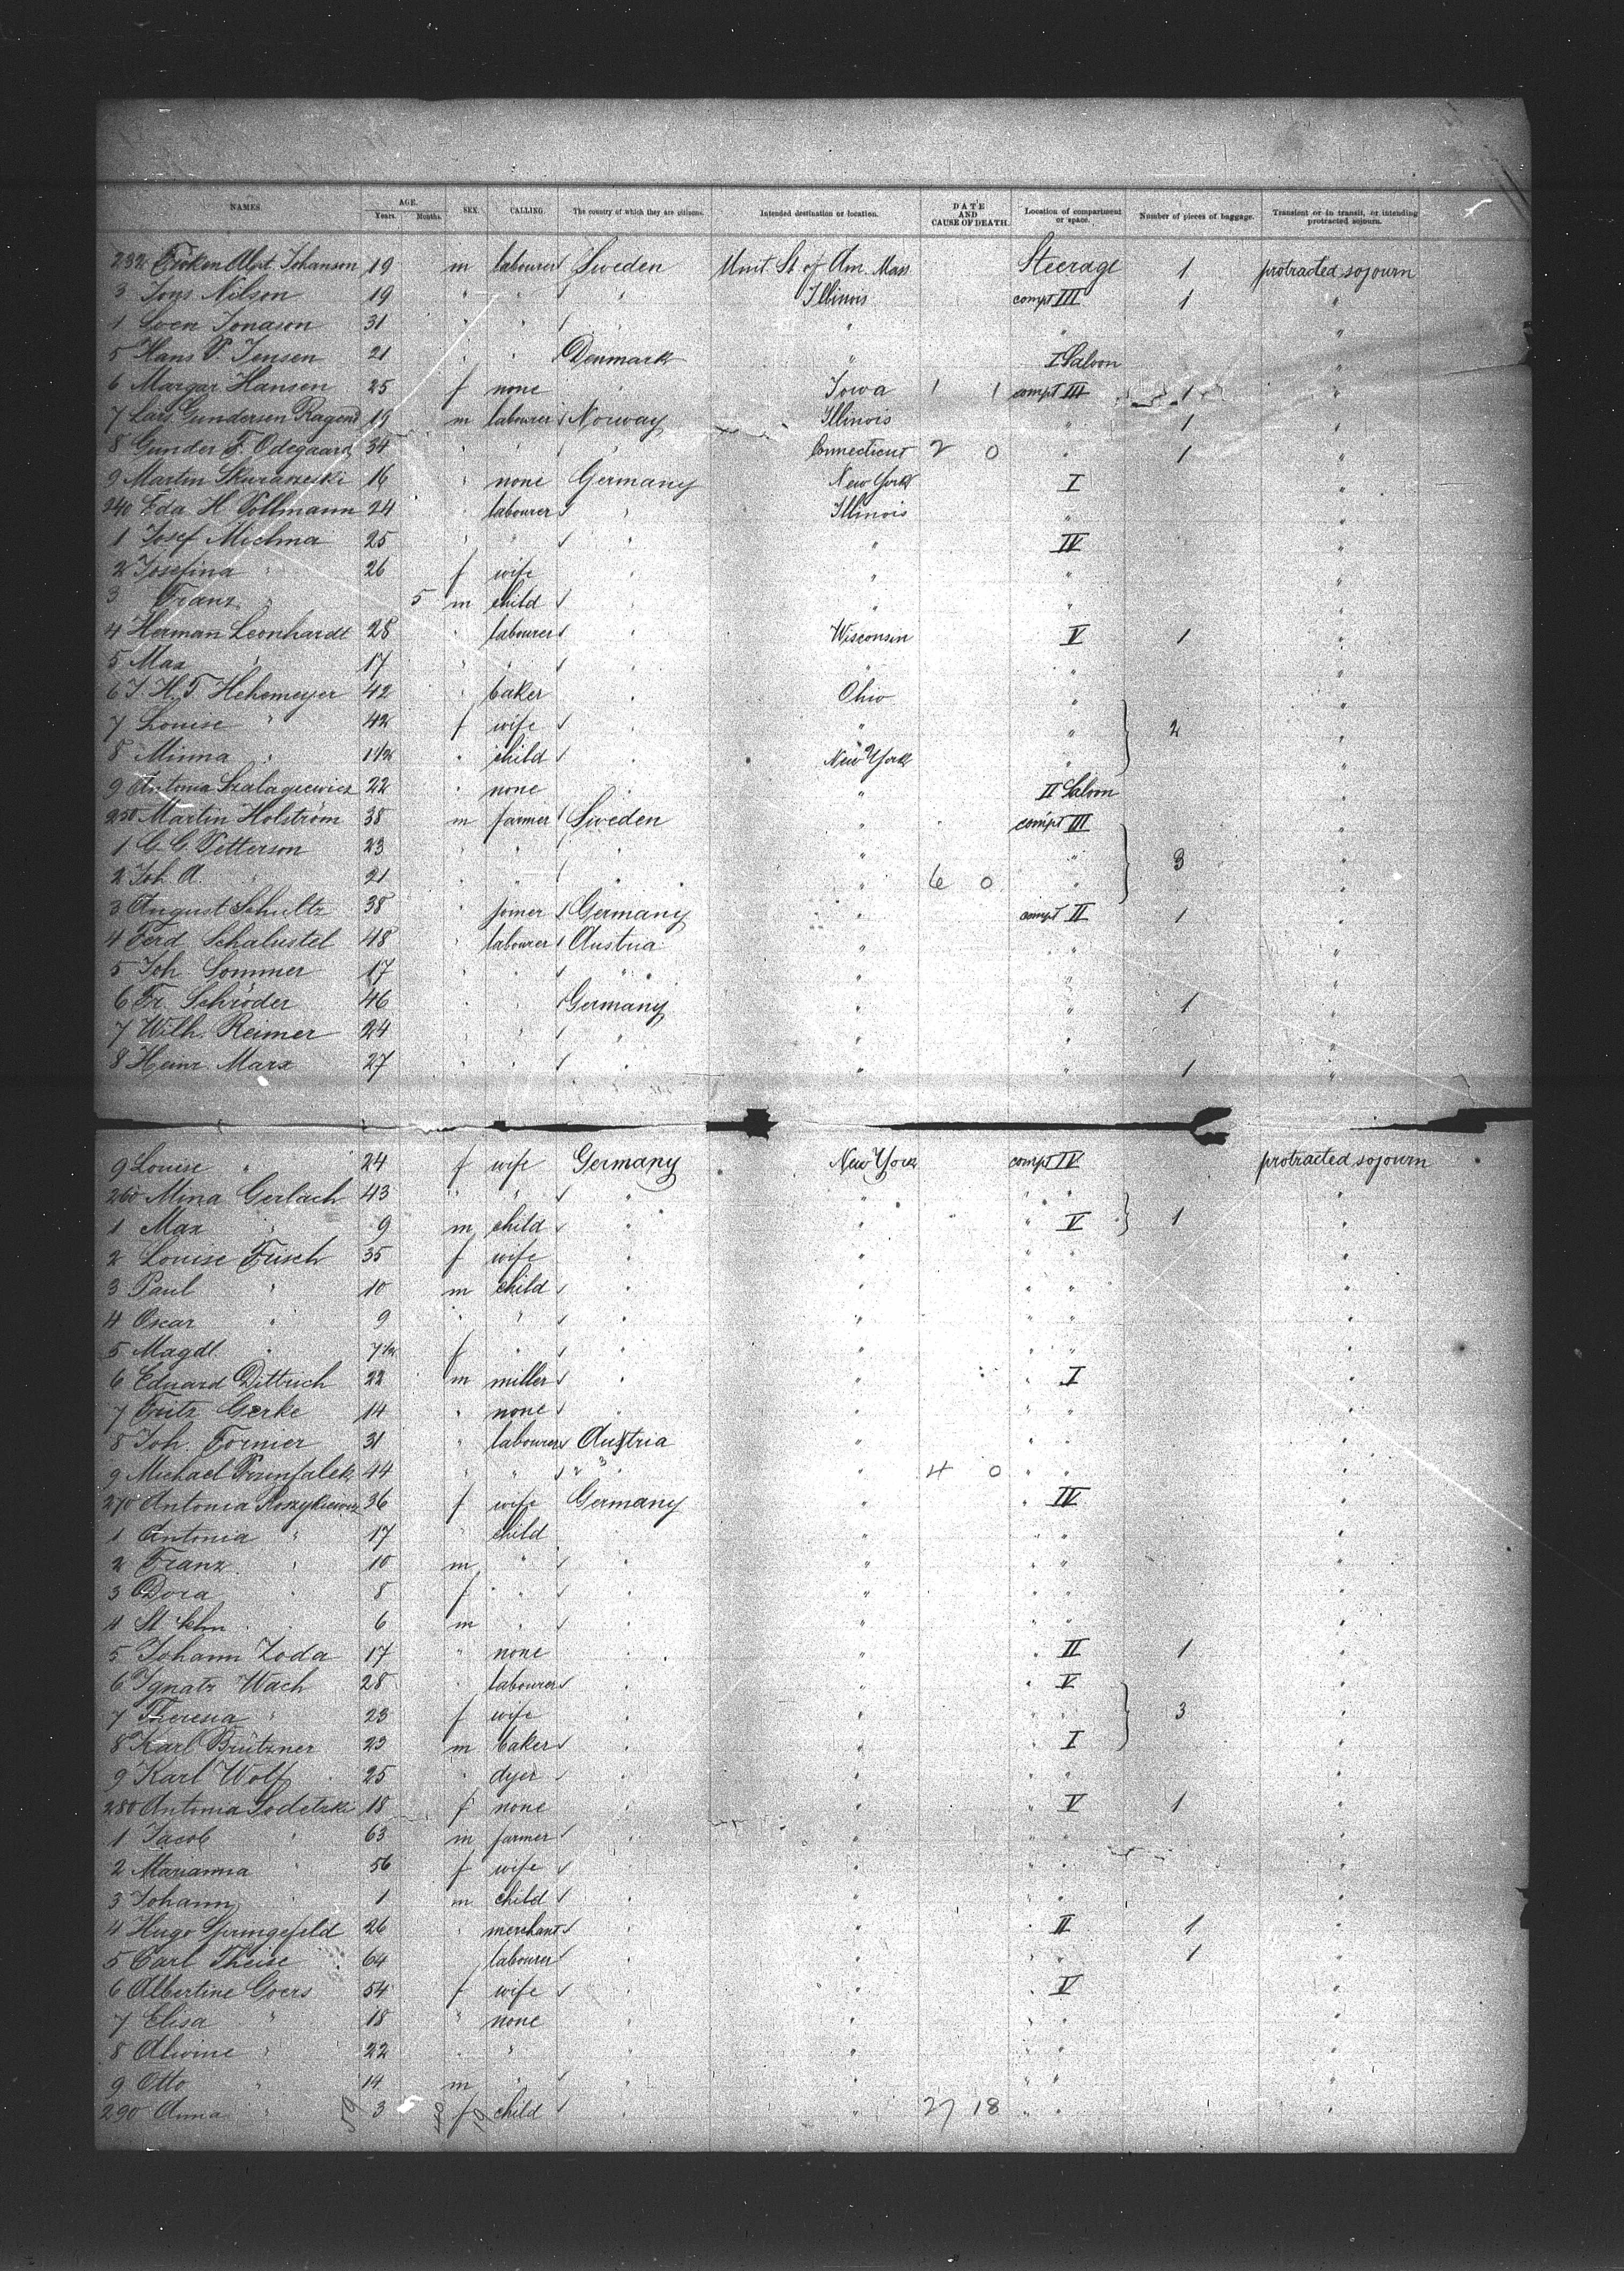 NAMES. AGE. Years. Months. SEX. CALLING. The country of which they are citizens. Intended destination or location. DATE AND CAUSE OF DEATH. Location of compartment or space. Number of pieces of baggage. Transient or in transit, or intending protracted sojourn.
232 Albt. Johanson 19 m labourer Sweden Unit. St. of Am. Mass Steerage 1 protracted sojourn
3 Jons Nilson 19 " " " Illinois compt III 1 "
Sven Jonason 31 " " " " " "
5 Hans P. Jensen 21 " " Denmark " I Saloon "
6 Margar Hansen 25 f none " Iowa 1 1 compt III 1 "
7 Lars Gundersen 19 m labourer Norway Illinois " 1 "
8 Gunder F. Odegaard 34 " " " Connecticut 2 0 " 1 "
9 Martin 16 " none Germany New York I "
240 Eda H Pollmann 24 " labourer " Illinois " "
1 Josef Michna 25 " " " " IV "
2 Josefina " 26 f wife " " " "
3 Franz " 5 m child " " " "
4 Herman Leonhardt 28 " labourer " Wisconsin V 1 "
5 Max " 17 " " " " " "
6 J. H. T. Hehemeyer 42 " baker " Ohio " "
7 Louise " 42 f wife " " " 2 "
8 Minna " 1 1/2 " child " New York " "
9 Antonia Szalagiewicz 22 " none " " II Saloon "
250 Martin Holström 38 m farmer Sweden " compt III "
1 C. G. Petterson 23 " " " " " 3 "
2 Joh. A. " 21 " " " " 6 0 " "
3 August Schultz 38 " joiner Germany " compt II 1 "
4 Ferd Schalustel 48 " labourer Austria " " "
5 Joh. Sommer 17 " " " " " "
6 Fr. Schröder 46 " " Germany " " 1 "
7 Wilh. Reimer 24 " " " " " "
8 Heinr. Marx 27 " " " " " 1 "
9 Louise " 24 f wife Germany New York compt IV protracted sojourn
260 Mina Gerlach 43 " " " " " " "
1 Max " 9 m child " " " V 1 "
2 Louise Fusch 35 f wife " " " " "
3 Paul " 10 m child " " " " "
4 Oscar " 9 " " " " " " "
5 Magdl. " 7 1/2 f " " " " " "
6 Eduard Dittrich 22 m miller " " " I "
7 Fritz Gerke 14 " none " " " " "
8 Joh. Fornier 31 " labourer Austria " " " "
9 Michael 44 " " " " 4 0 " " "
270 Antonia 36 f wife Germany " " IV "
1 Antonia " 17 " child " " " "
2 Franz " 10 m " " " " " "
3 Dora " 8 f " " " " " "
4 6 m " " " " " "
5 Johann Zoda 17 " none " " " II 1 "
6 Ignatz Wach 28 " labourer " " " V "
7 Theresia " 23 f wife " " " " 3 "
8 Karl Brützner 23 m baker " " " I "
9 Karl Wolf 25 " dyer " " " " "
280 Antonia Sodetzki 18 f none " " " V 1 "
1 Jacob " 63 m farmer " " " " "
2 Marianna " 56 f wife " " " " "
3 Johann " 1 m child " " " " "
4 Hugo Springefeld 26 " merchant " " " II 1 "
5 Carl Theise 64 labourer " " " " 1 "
6 Albertine Goers 54 f wife " " " V "
7 Elisa " 18 " none " " " " "
8 Alwine " 22 " " " " " " "
9 Otto " 14 m " " " " " "
290 Anna " 3 f child " " 27 18 " " "
59 19